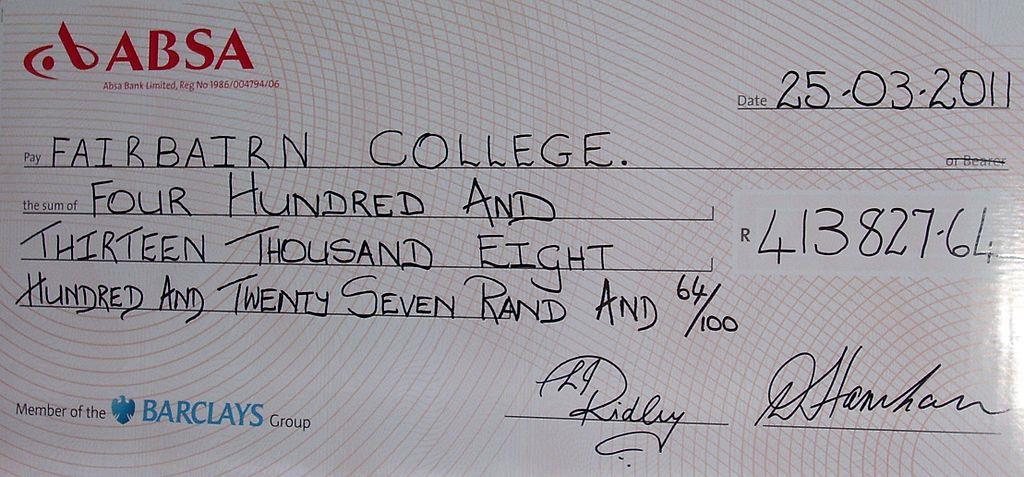 ABSA
Absa Bank Limited, Reg No 1986/004794/06
Date 25-03-2011
Pay FAIRBAIRN COLLEGE. or Bearer
the sum of FOUR HUNDRED AND
THIRTEEN THOUSAND EIGHT
R 413827-64
HUNDRED AND TWENTY SEVEN RAND AND 64/100
Ridley
Member of the BARCLAYS Group